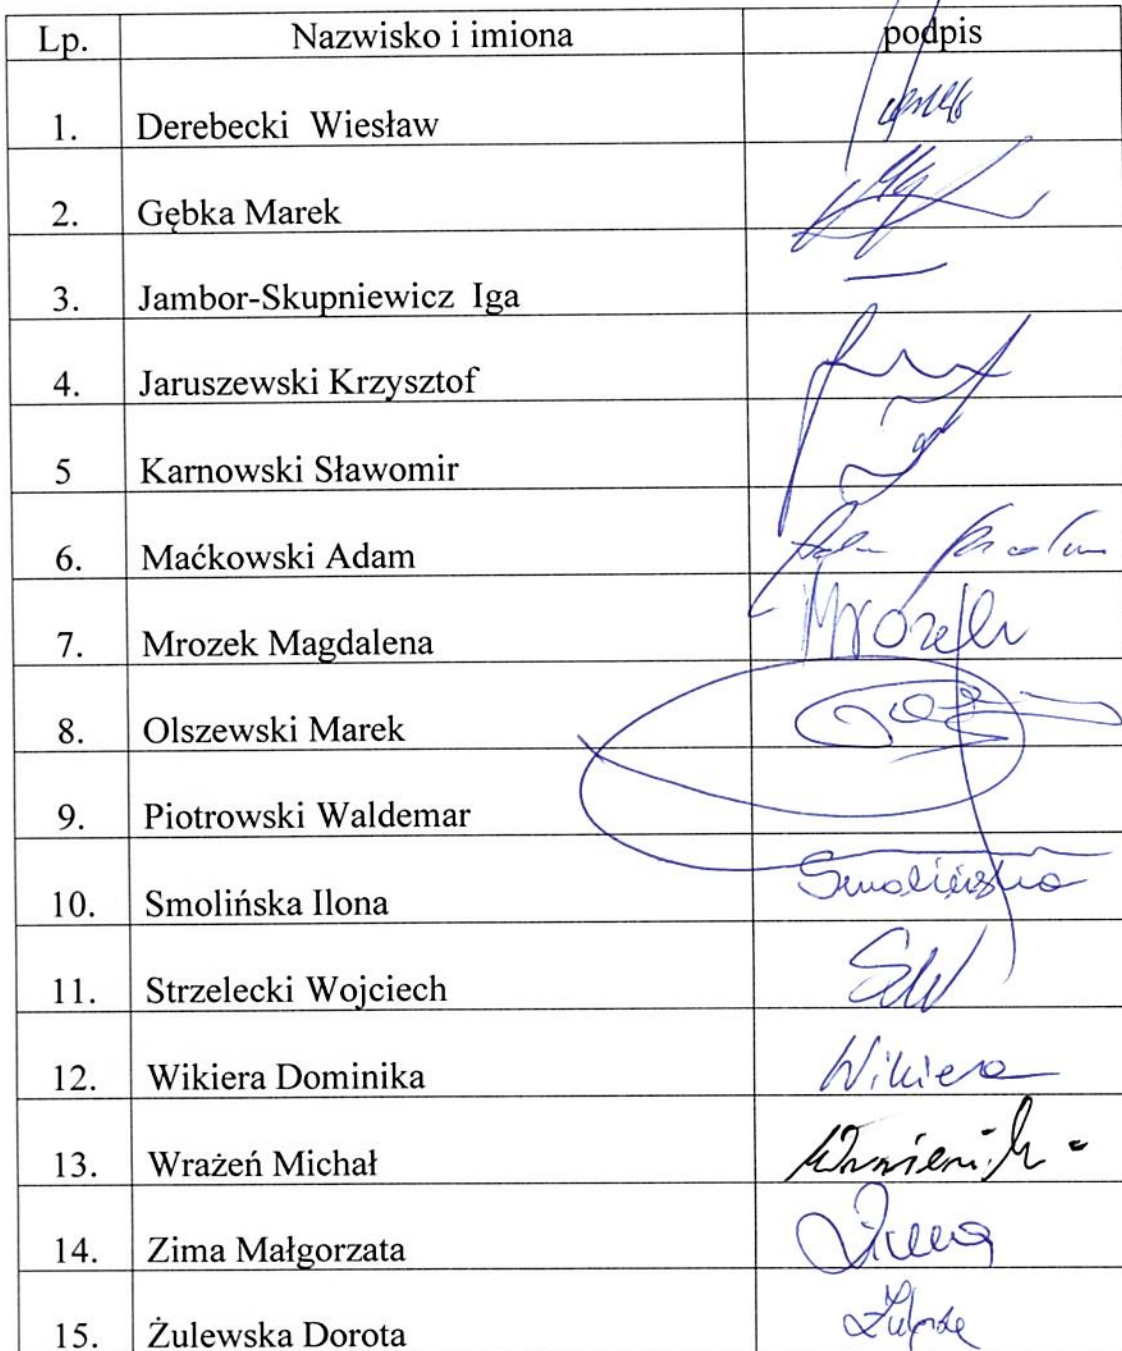 Lp. Nazwisko i imiona podpis
1. Derebecki Wiesław
2. Gębka Marek
3. Jambor-Skupniewicz Iga —
4. Jaruszewski Krzysztof
5 Karnowski Sławomir
6. Maćkowski Adam
7. Mrozek Magdalena Mrozek
8. Olszewski Marek
9. Piotrowski Waldemar
10. Smolińska Ilona Smolińska
11. Strzelecki Wojciech
12. Wikiera Dominika Wikiera
13. Wrażeń Michał
14. Zima Małgorzata Zima
15. Żulewska Dorota